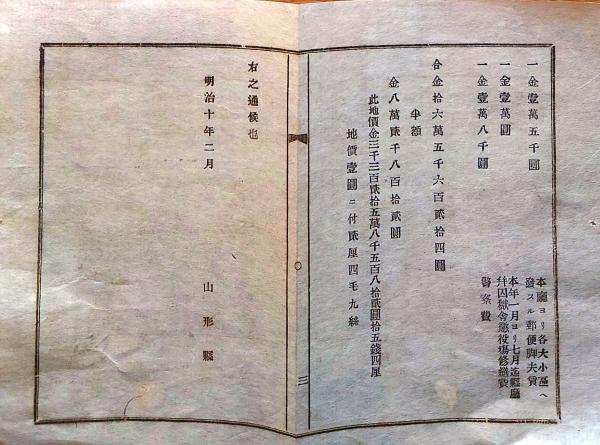 一金壹萬五千圓 本廳ヨリ各大小區ヘ發スル郵便脚夫賃
一金壹萬圓 本年一月ヨリ七月迄縣廳幷囚獄舍懲役塲修繕費
一金壹萬八千圓 警察費
合金拾六萬五千六百貳拾四圓
半額
金八萬貳千八百拾貳圓
此地價金三千三百貳拾五萬八千五百八拾貳圓拾五錢四厘
地價壹圓ニ付貳厘四毛九絲
三
右之通候也
明治十年二月
山形縣